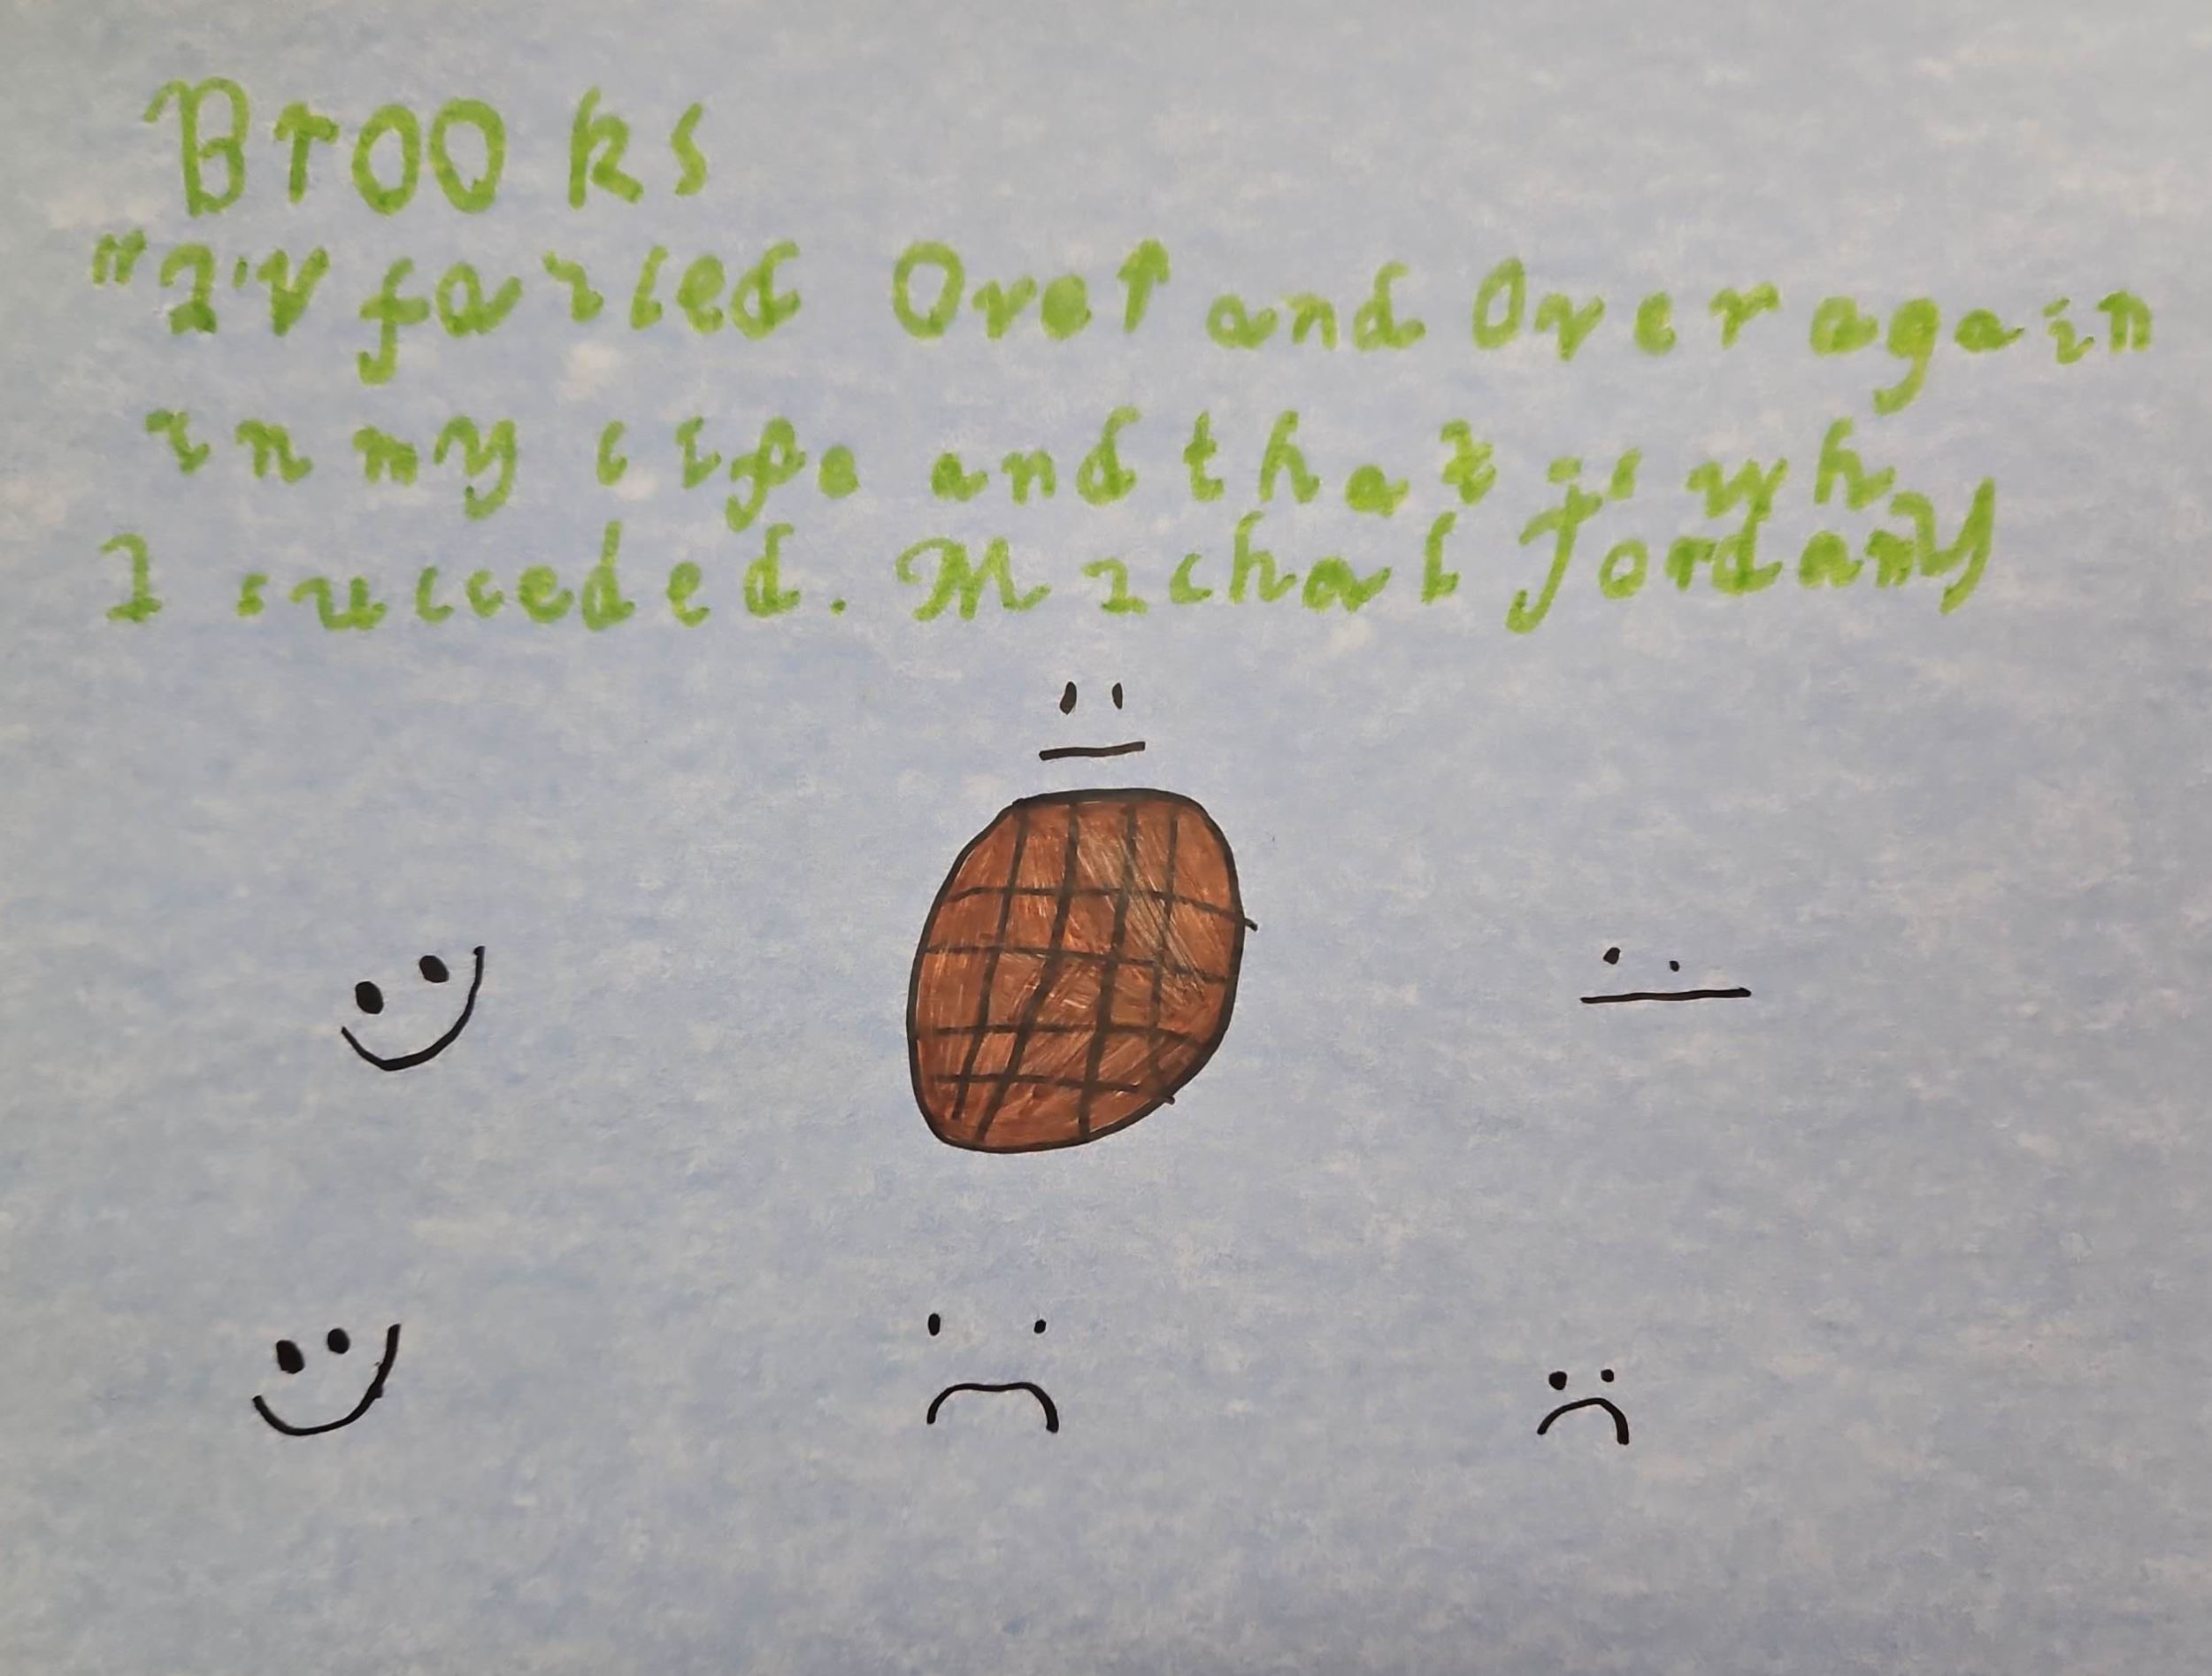 Brooks
"I'v failed Over and Over again
in my life and that is why
I succeded. Michal Jordan